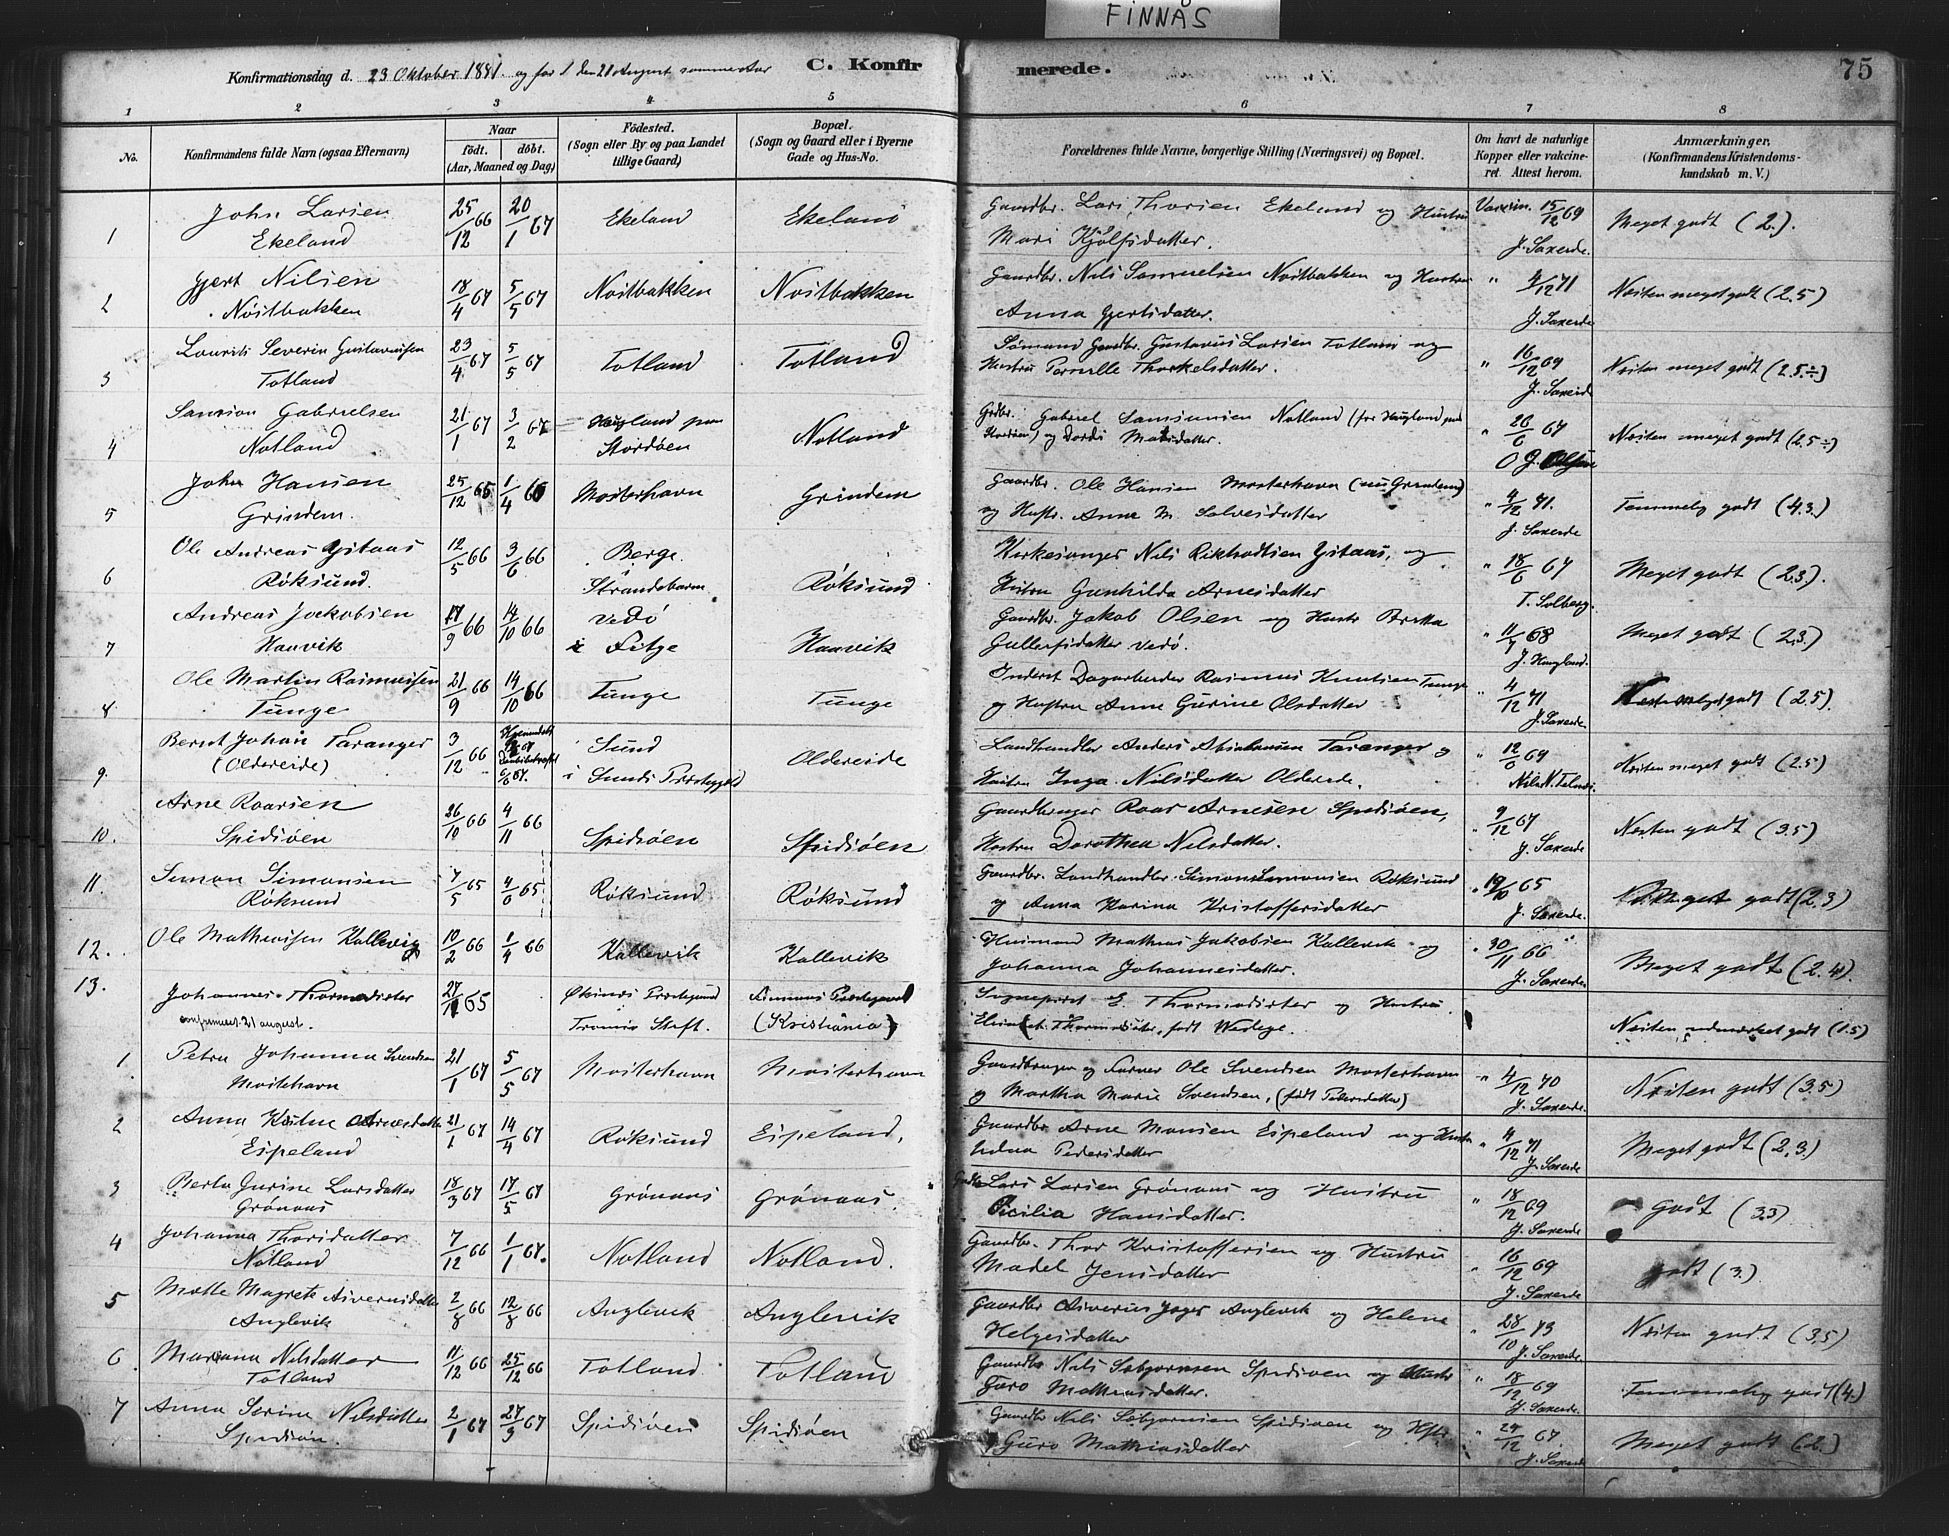 FINNÅS
Konfirmationsdag d. 23 Oktober 1881. og for 1 den 21 August samme Aar
C. Konfirmerede.
75
1 2 3 4 5 6 7 8
No.
Konfirmandens fulde Navn (ogsaa Efternavn)
Naar
födt. döbt.
(Aar, Maaned og Dag)
Födested.
(Sogn eller By og paa Landet
tillige Gaard)
Bopæl.
(Sogn og Gaard eller i Byerne
Gade og Hus-No.
Forældrenes fulde Navne, borgerlige Stilling (Næringsvei) og Bopæl.
Om havt de naturlige
Kopper eller vakcine-
ret. Attest herom.
Anmærkninger.
(Konfirmandens Kristendoms-
kundskab m. V.)
1 John Larsen 25/12 66 20/1 67 Ekeland Ekeland Gaardbr. Lars Thorsen Ekeland og Hustru Vaccin. 15/12 69 Meget godt (2.).
Ekeland Mari Kjölfsdatter. J. Saxeide.
2 Gjert Nilsen 18/4 67 5/5 67 Nöstbakken Nöstbakken Gaardbr. Nils Samuelsen Nöstbakken og Hustru " 4/12 71 Næsten meget godt (2.5)
Nöstbakken Anna Gjertsdatter. J. Saxeide
3 Laurits Severin Gustavussen 23/4 67 5/5 67 Totland Totland Sömand Gaardbr. Gustavus Larsen Totland og " 16/12 69 Næsten meget godt (2.5÷)
Totland Hustru Pernille Thorkelsdatter. J. Saxeide
4 Samson Gabrielsen 21/1 67 3/2 67 Haugland paa Notland Grdbr. Gabriel Samsonsen Notland (for Haugland paa " 26/6 67 Næsten meget godt (2.5÷)
Notland Stordöen Stordöen) og Dordi Matsdatter. O J. Olsen
5 John Hansen 25/12 65 1/4 66 Mosterhavn Grindem Gaardbr. Ole Hansen Mosterhavn (nu Grindem) " 4/12 71. Temmelig godt (4.3.)
Grindem. og Hustr. Anne M. Salvesdatter J. Saxeide
6 Ole Andreas Gstaas 12/5 66 3/6 66 Berge i Röksund Kirkesanger Nils Rikhodtsen Gstaas, og " 18/6 67 Meget godt (2.3).
Röksund. Strandebarm Hustru Gunhilda Arnesdatter T. Solberg.
7 Andreas Jackobsen 17/9 66 14/10 66 Vedö Haavik Gaardbr. Jakob Olsen og Hustr Brita " 11/7 68 Meget godt (2.3.)
Haavik i Fitje Gulleifsdatter Vedö. J. Haugland.
8 Ole Martin Rasmussen 21/9 66 14/10 66 Tunge Tunge Inderst Dagarbeider Rasmus Knutsen Tunge " 4/12 71 Næsten meget godt (2.5).
Tunge og Hustru Anne Gurine Olsdatter J. Saxeide
9. Bernt Johan Taranger 3/12 66 Sund Oldereide Landhandler Anders Taranger og " 12/6 69 Næsten meget godt (2.5)
(Oldereide) 6/6 67. i Sunds Præstegjeld Hustru Inga Nilsdatter Oldereide. Nils N. Telnæs.
10. Arne Roarsen 26/10 66 4/11 66 Spidsöen Spidsöen Gaardbruger Roar Arnesen Spidsöen, " 9/12 67 Næsten godt (3.5)
Spidsöen Hustru Dorothea Nilsdatter. J. Saxeide
11. Simon Simonsen 7/5 65 4/6 65 Röksund Röksund Gaardbr. Landhandler Simon Simonsen Röksund " 19/10 65 Meget godt (2.3)
Röksund og Anna Karina Kristoffersdatter J. Saxeide.
12. Ole Mathiassen Kallevig 10/2 66 1/4 66 Kallevik Kallevik Husmand Mathias Jakobsen Kallevik og " 30/11 66 Meget godt (2.4).
Johanna Johannesdatter. J. Saxeide.
13. Johannes Thormodsæter 27/11 65 Öksnes Præstegjeld Finnaas Præstegaard Sognepræst E. Thormodsæter og Hustru Næsten udmærket godt (1.5)
confirmeret 21 august. Tromsö Stift. (Kristiania) Thormodsæter, født Wedege.
1 Petra Johanna Svendsen 21/1 67 5/5 67 Mosterhavn Mosterhavn Gaardbruger og Farver Ole Svendsen Mosterhavn " 4/12 70 Næsten godt (3.5)
Mosterhavn og Martha Marie Svendsen, (født Pedersdatter) J. Saxeide.
2 Anna Kristine Arnesdatter 21/1 67 14/4 67 Röksund Espeland, Gaardbr. Arne Monsen Espeland og Hustru " 4/12 71 Meget godt (2.3.)
Espeland Pedersdatter J. Saxeide
3 Berta Gurine Larsdatter 18/3 67 17/5 67 Grönaas Grönaas. Grdbr. Lars Larsen Grönaas og Hustru " 18/12 69 godt (3.3)
Grönaas Cicilia Hansdatter. J. Saxeide.
4 Johanna Thorsdatter 7/12 66 1/1 67. Notland Notland. Gaardbr. Thor Kristoffersen og Hustru " 16/12 69 godt (3.)
Notland Madel Jensdatter J. Saxeide
5 Mette Magrete Asverusdatter 2/8 66 12/8 66 Anglevik Anglevik Gaardbr Asverus Jager Anglevik og Helene " 28/10 73 Næsten godt (3.5)
Anglevik Helgesdatter J. Saxeide.
6 Mariana Nilsdatter 11/12 66 25/12 66 Totland. Totland Gaardbr Nils Sebjornsen Spidsöen og Hustr " 18/12 69 Temmelig godt (4.)
Totland Guro Mathiasdatter. J. Saxeide.
7 Anna Serine Nilsdatter 2/1 67 27/3 67 Spidsöen Spidsöen Gaardbr Nils Sebjornsen Spidsöen og Hstr " 24/12 67. Meget godt (2.)
Spidsöen. Guro Mathiasdatter J. Saxeide